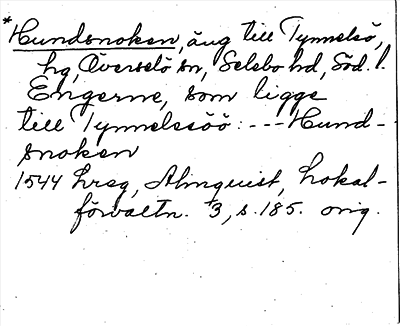 *Hundsnoken, äng till Tynnelsö,
hg, Överselö sn, Selebo hd, Söd. l.
Engerne, som ligge
till Tynnelssöö: --- Hund-
snoken
1544 hreg, Almquist, Lokal-
förvaltn. 3, s. 185. orig.